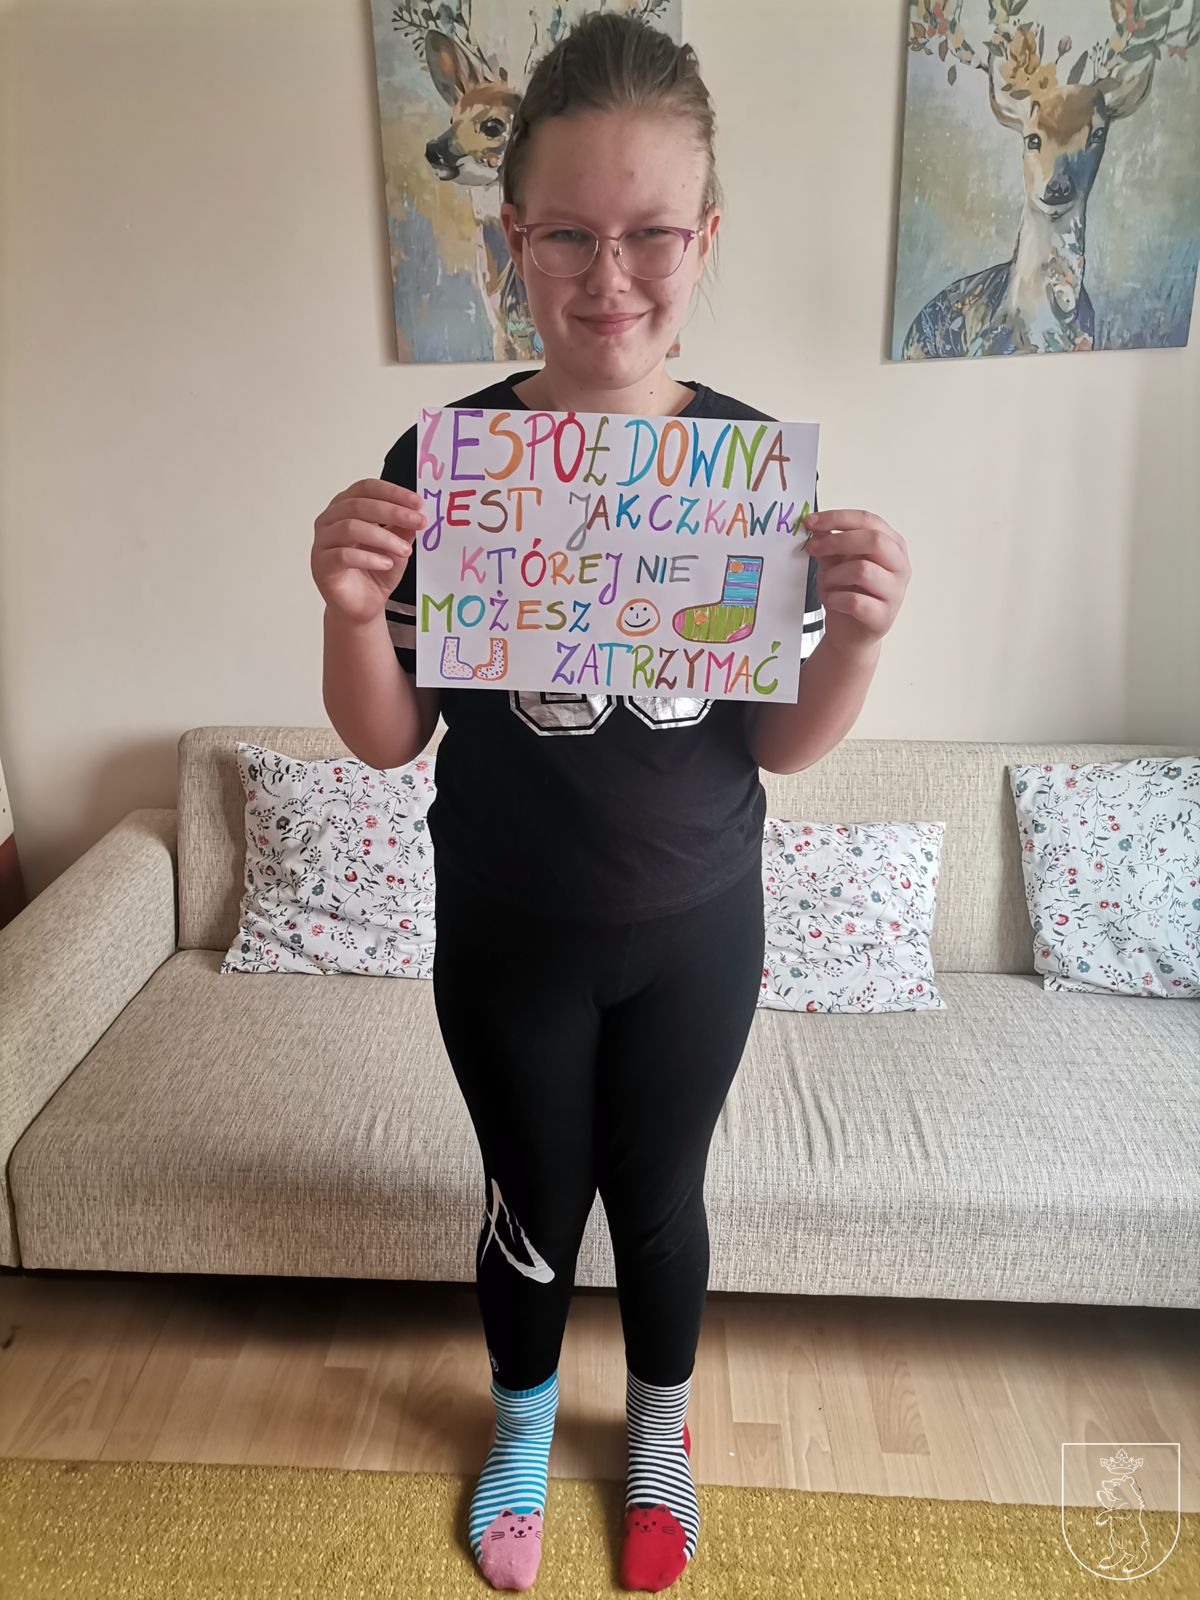 ZESPÓŁ DOWNA
JEST JAK CZKAWKA
KTÓREJ NIE
MOŻESZ
ZATRZYMAĆ